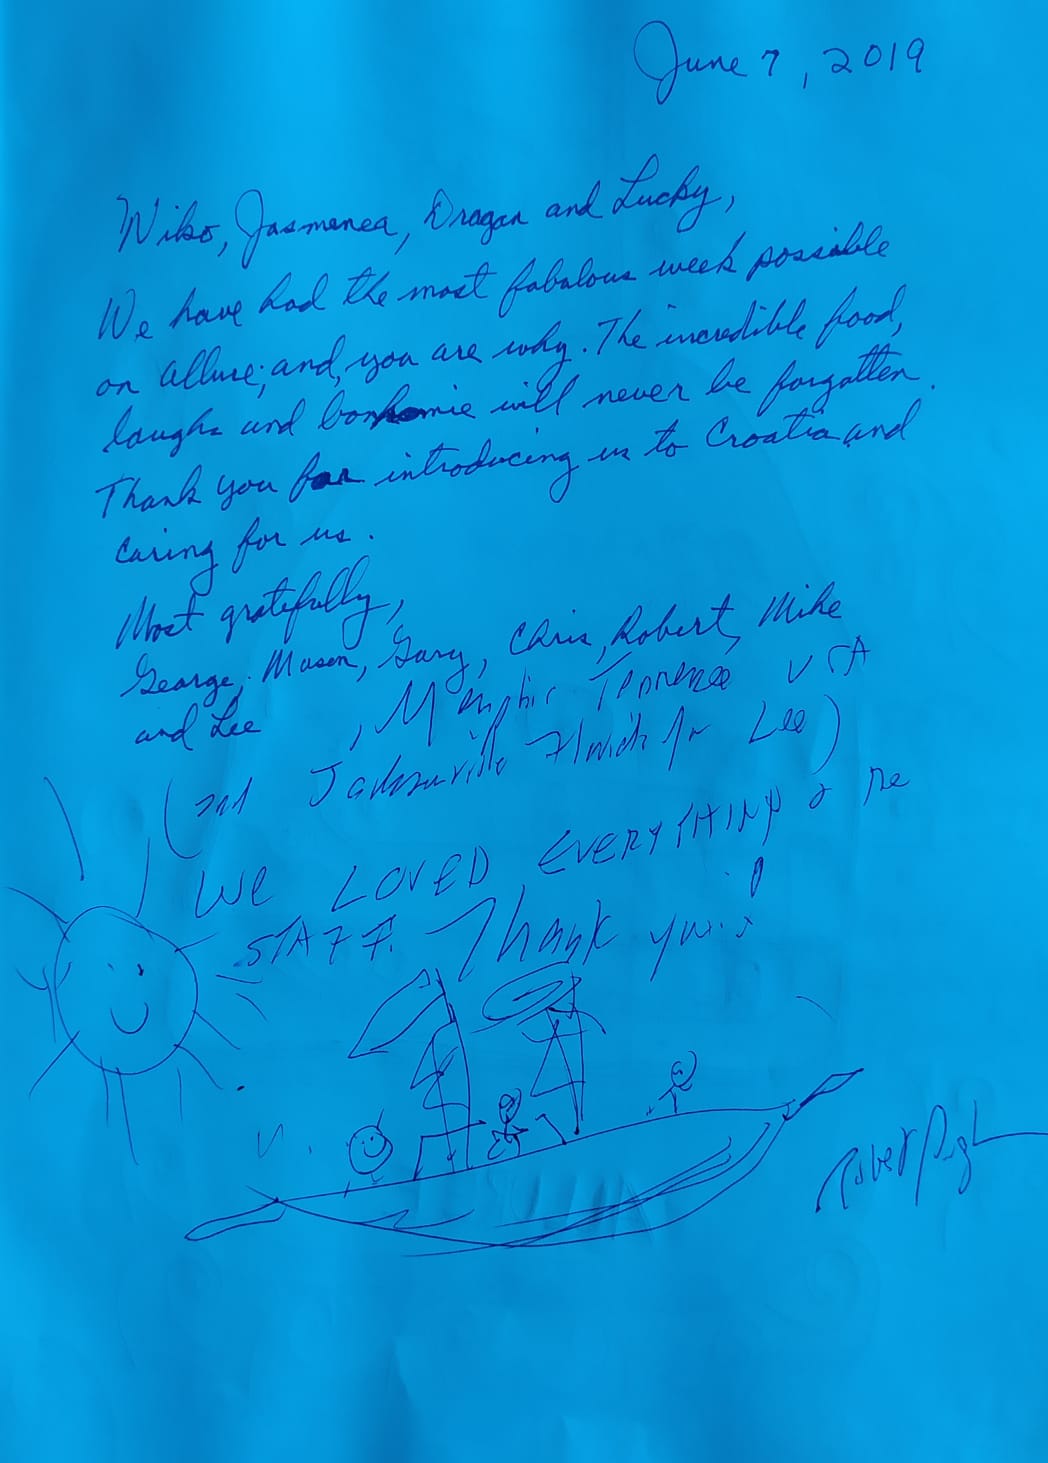 June 7, 2019
Niko, Jasmenea, Dragan and Lucky,
We have had the most fabalous week possible
on allure; and, you are why. The incredible food,
laughs and bonhomie will never be forgotten.
Thank you for introducing us to Croatia and
caring for us.
Most gratefully,
George, Mason, Gary, Chris, Robert, Mike
and Lee, Memphis Tennessee USA
(and Jacksonville Florida for Lee)
WE LOVED EVERYTHING & the
STAFF. Thank you!
Robert